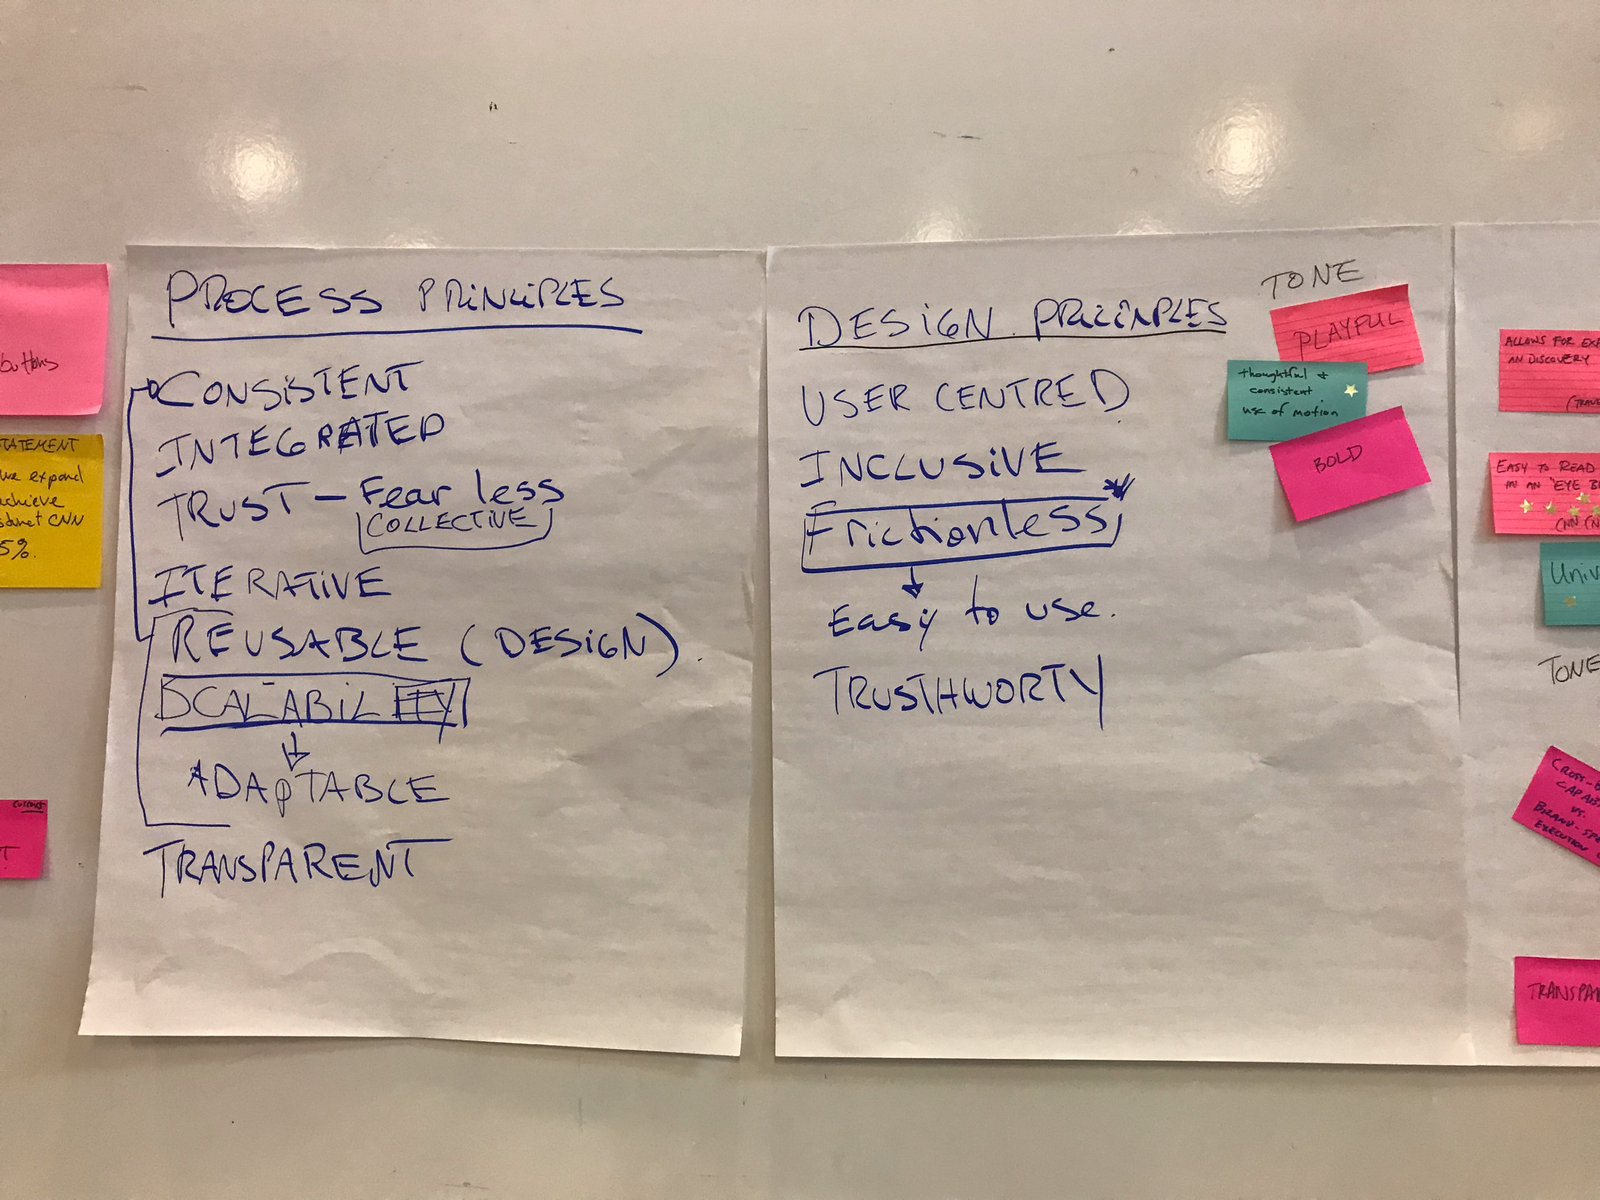 buttons
TATEMENT
we expand
achieve
CNN
5%.
current
T
PROCESS PRINCIPLES
CONSISTENT
INTEGRATED
TRUST - Fear less
COLLECTIVE
ITERATIVE
REUSABLE (DESIGN).
SCALABILITY
ADApTABLE
TRANSPARENT
DESIGN PRIINPLES
USER CENTRED
INCLUSIVE
Frictionless
Easy to use.
TRUSTHWORTY
TONE
PLAYFUL
thoughtful +
consistent
use of motion
BOLD
ALLOWS FOR EXP
AN DISCOVERY
(TRAVE
EASY TO READ
IN AN 'EYE B
CNN
Univ
TONE
CROSS-B
CAPAB
VS.
BRAND-SPE
EXECUTION
TRANSPA